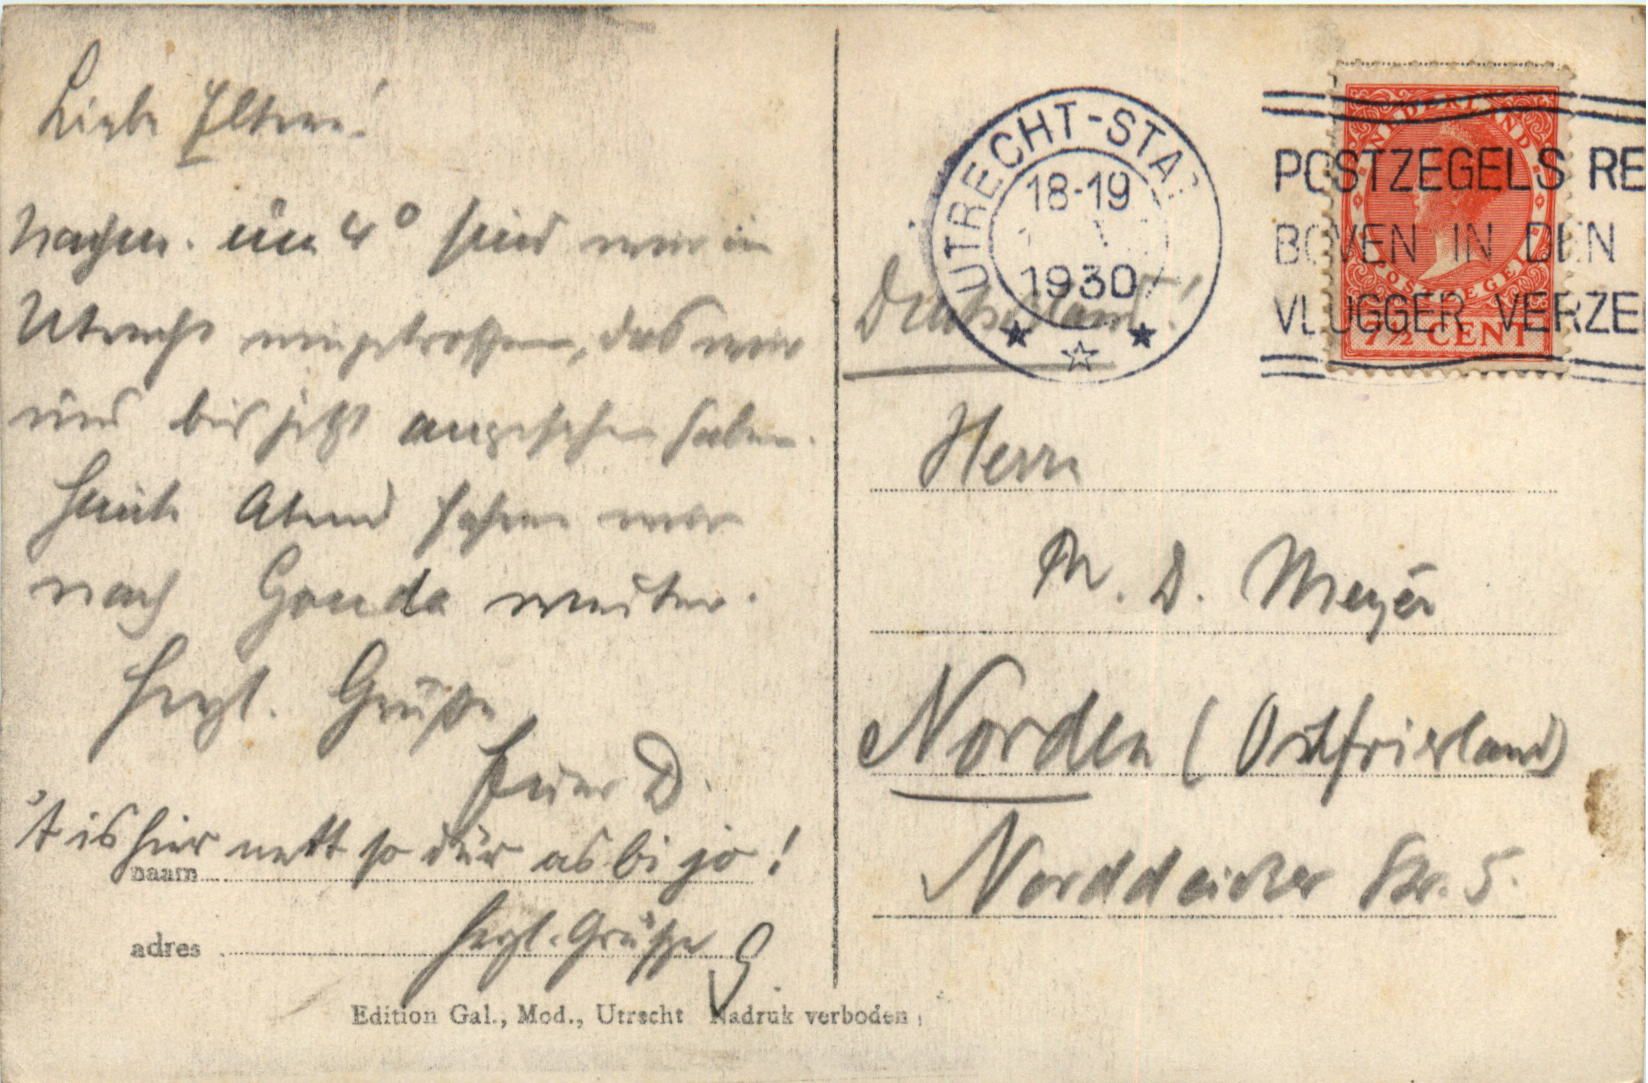 Liebe Eltern!
Nachm. um 4° sind wir in
Utrecht eingetroffen, das wir
uns bis jetzt angesehen haben.
Heute Abend fahren wir
nach Gouda weiter.
Herzl. Grüße
Euer D.
't is hier nett so dür as bi jo!
naam
adres
Herzl. Grüße G
Edition Gal., Mod., Utrecht Nadruk verboden
UTRECHT-STA
18-19
1930
POSTZEGELS RE
BOVEN IN DEN
VLUGGER VERZE
NEDERLAND
POSTZEGEL
7½ CENT
Deutschland!
Herrn
D. Meyer
Norden (Ostfriesland)
Norddeicher Str. 5.